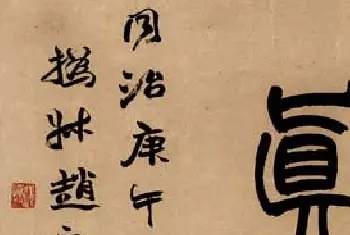 眞
同治庚午
撝叔趙